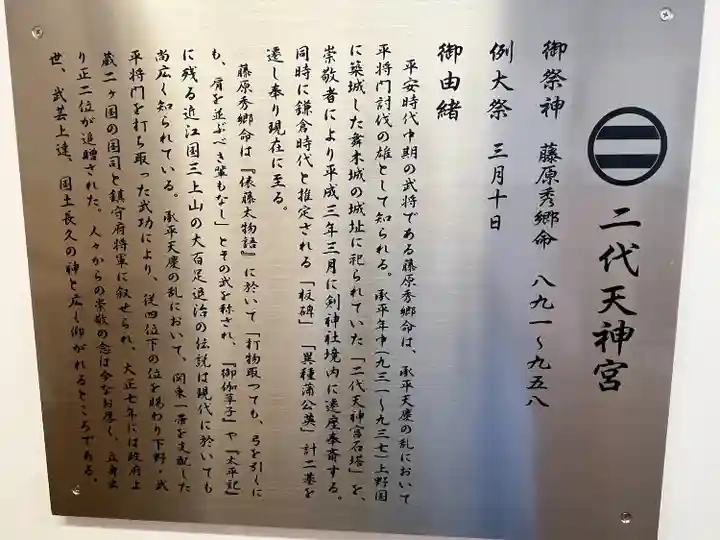 二代天神宮
御祭神　藤原秀郷命　八九一〜九五八
例大祭　三月十日
御由緒
平安時代中期の武将である藤原秀郷命は、承平天慶の乱において
平将門討伐の雄として知られる。承平年中(九三一〜九三七)上野国
に築城した舞木城の城址に祀られていた「二代天神宮石塔」を、
崇敬者により平成三年三月に剣神社境内に遷座奉斎する。
同時に鎌倉時代と推定される「板碑」「異種蒲公英」計二基を
遷し奉り現在に至る。
藤原秀郷命は『俵藤太物語』に於いて「打物取つても、弓を引くに
も、肩を並ぶべき輩もなし」とその武を称され、『御伽草子』や『太平記』
に残る近江国三上山の大百足退治の伝説は現代に於いても
尚広く知られている。承平天慶の乱において、関東一帯を支配した
平将門を打ち取った武功により、従四位下の位を賜わり下野・武
蔵二ヶ国の国司と鎮守府将軍に叙せられ、大正七年には政府よ
り正二位が追贈された。人々からの崇敬の念は今なお厚く、立身出
世、武芸上達、国土長久の神と広く仰がれるところである。